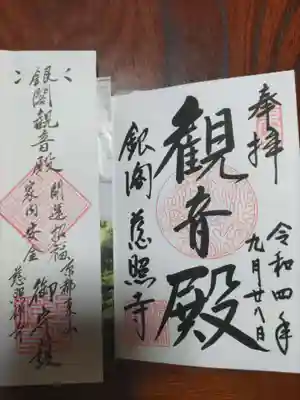 奉拝
令和四年
九月廿八日
觀音殿
銀閣 慈照寺
京都東山
御守護
開運招福
家内安全
銀閣觀音殿
慈照禅寺